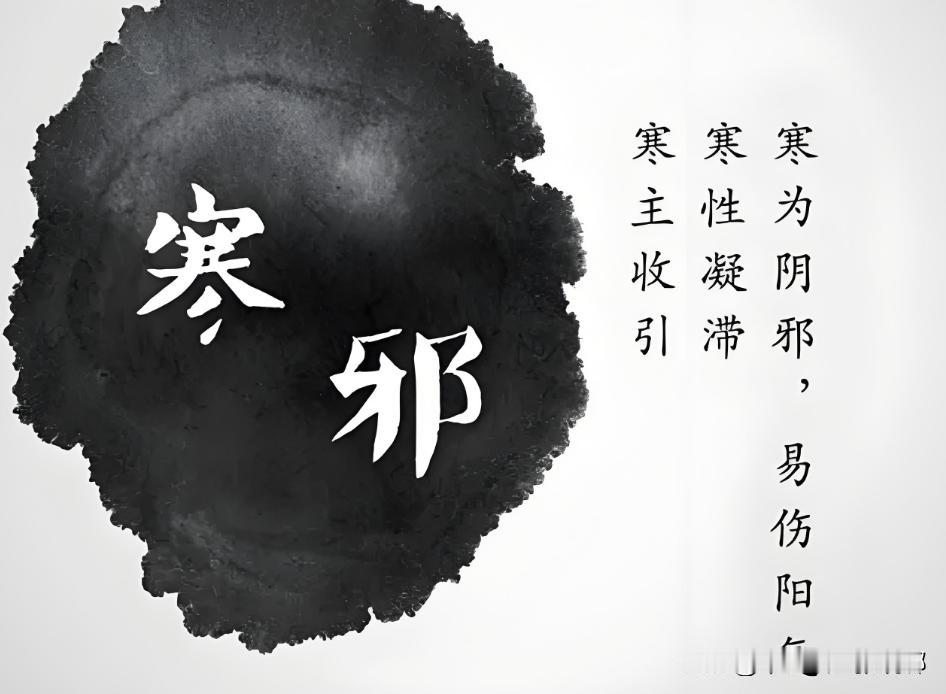 寒邪
寒为阴邪，易伤阳
寒性凝滞
寒主收引